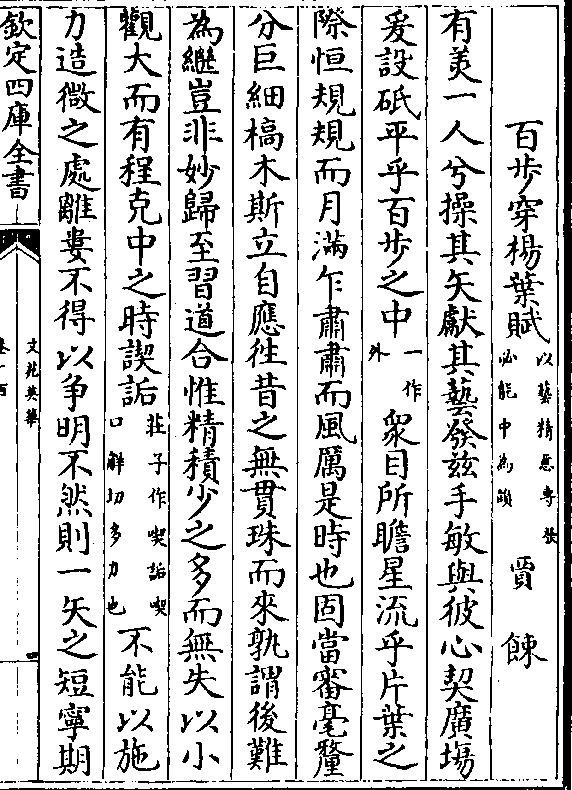 百步穿楊葉賦以藝精應專發必能中為韻 賈餗
有美一人兮操其矢獻其藝發茲手敏與彼心契廣場
爰設砥平乎百步之中一作外衆目所瞻星流乎片葉之
際恒規規而月滿乍肅肅而風厲是時也固當審毫釐
分巨細槁木斯立自應徃昔之無貫珠而來孰謂後難
為繼豈非妙歸至習道合惟精積少之多而無失以小
觀大而有程克中之時謑詬莊子作喫詬喫口解切多力也不能以施
力造微之處離婁不得以争明不然則一矢之短寧期
欽定四庫全書
文苑英華